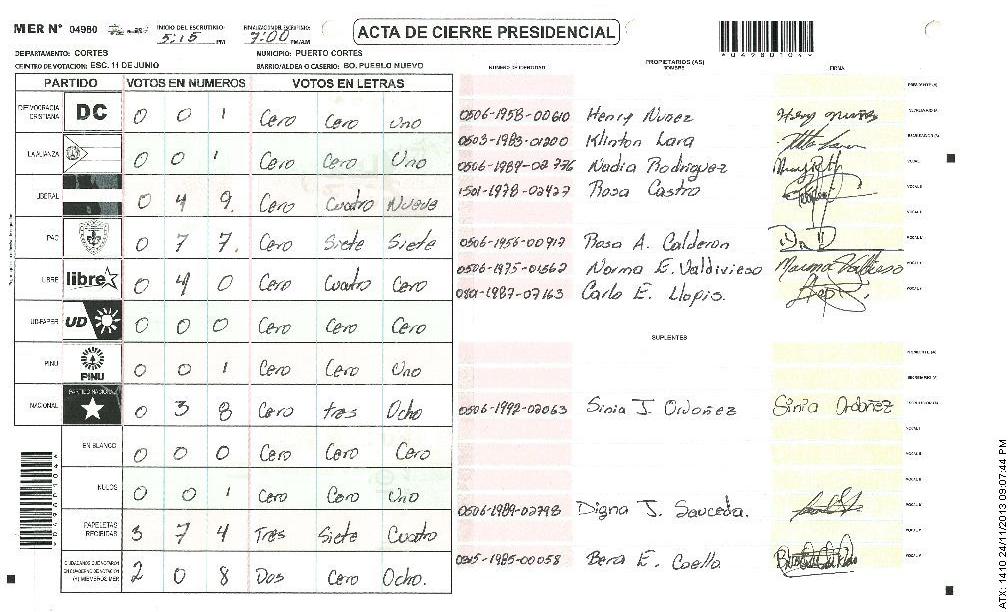 MER Nº 04980 INICIO DEL ESCRUTINIO: 5:15 PM FINALIZACION DEL ESCRUTINIO: 7:00 PM/AM
ACTA DE CIERRE PRESIDENCIAL
DEPARTAMENTO: CORTES MUNICIPIO: PUERTO CORTES
CENTRO DE VOTACION: ESC. 11 DE JUNIO BARRIO/ALDEA O CASERIO: BO. PUEBLO NUEVO
PARTIDO VOTOS EN NUMEROS VOTOS EN LETRAS
DEMOCRACIA CRISTIANA DC 0 0 1 Cero Cero Uno
LA ALIANZA 0 0 1 Cero Cero Uno
LIBERAL 0 4 9. Cero Cuatro Nueve
PAC 0 7 7. Cero Siete Siete
LIBRE libre 0 4 0 Cero Cuatro Cero
UD-FAPER UD 0 0 0 Cero Cero Cero
PINU PINU 0 0 1 Cero Cero Uno
NACIONAL PARTIDO NACIONAL 0 3 8 Cero tres Ocho
EN BLANCO 0 0 0 Cero Cero Cero
NULOS 0 0 1 Cero Cero Uno
PAPELETAS RECIBIDAS 3 7 4 Tres Siete Cuatro
2 0 8 Dos Cero Ocho.
NUMERO DE IDENTIDAD PROPIETARIOS (AS) NOMBRE FIRMA
0506-1958-00610 Henry Nuñez Henry Nuñez
0503-1983-01200 Klinton Lara
0506-1989-02776 Nadia Rodriguez
1501-1978-02427 Rosa Castro
0506-1956-00917 Rosa A. Calderon
0506-1975-01562 Norma E. Valdivieso
0801-1987-07163 Carlo E. Llopis.
SUPLENTES
0506-1992-02063 Sinia J. Ordoñez Sinia Ordoñez
0506-1989-02798 Digna J. Sauceda.
0505-1985-00058 Bera E. Coello
*04980104*
ATX: 1410 24/11/2013 09:07:44 PM